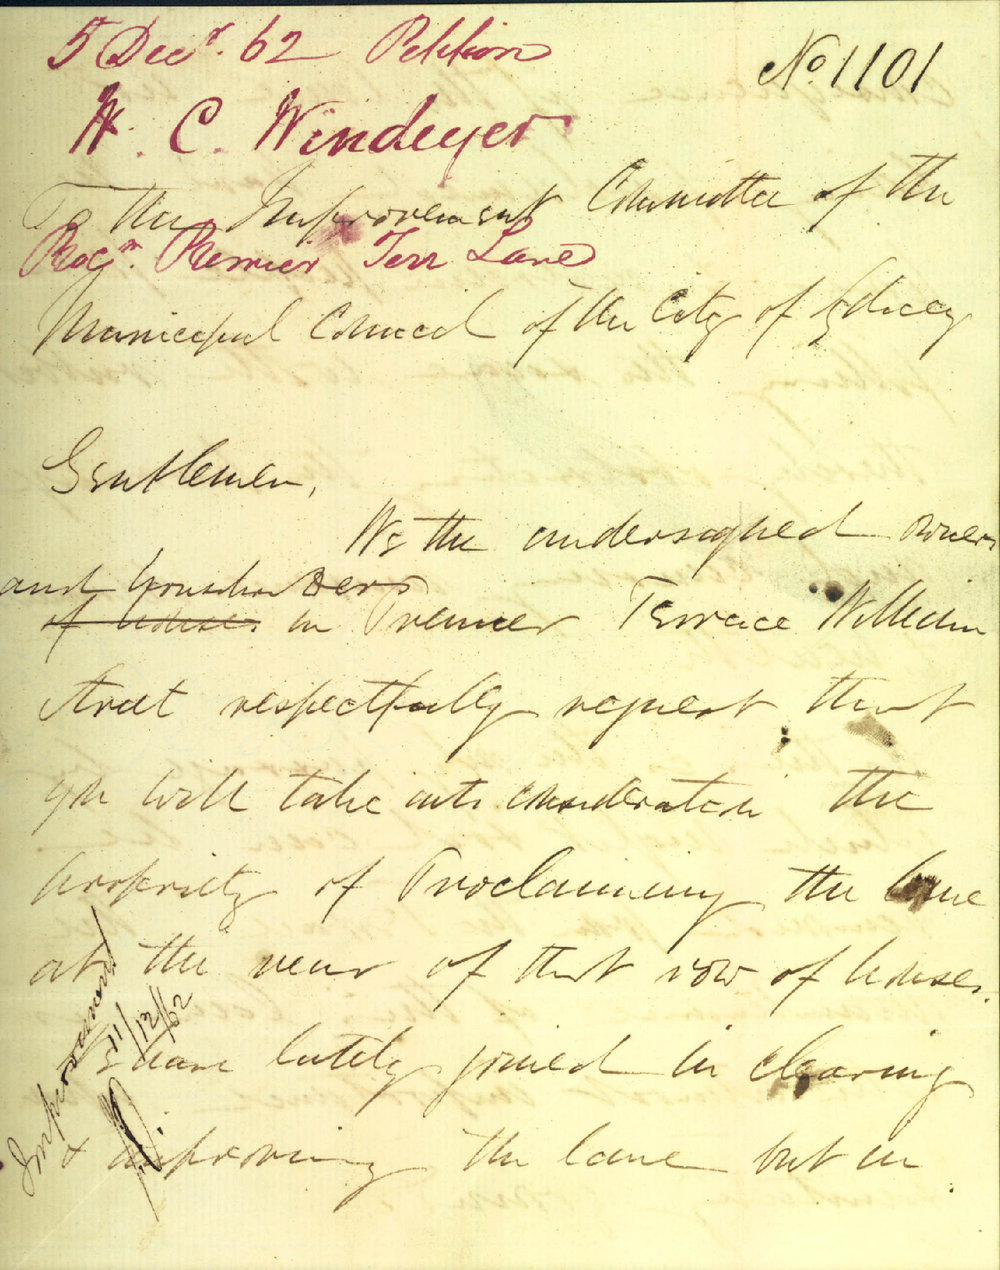 5 Decr. 62 Petition
No 1101
W. C. Windeyer
To the Improvement Committee of the
Proc.n Premier Terr Lane
Municipal Council of the City of Sydney
Gentlemen,
We the undersigned owners
and householders
of houses in Premier Terrace William
Street respectfully request that
you will take into consideration the
propriety of Proclaiming the lane
at the rear of that row of houses.
We have lately joined in clearing
& improving the lane but in
Improvement
11/12/62